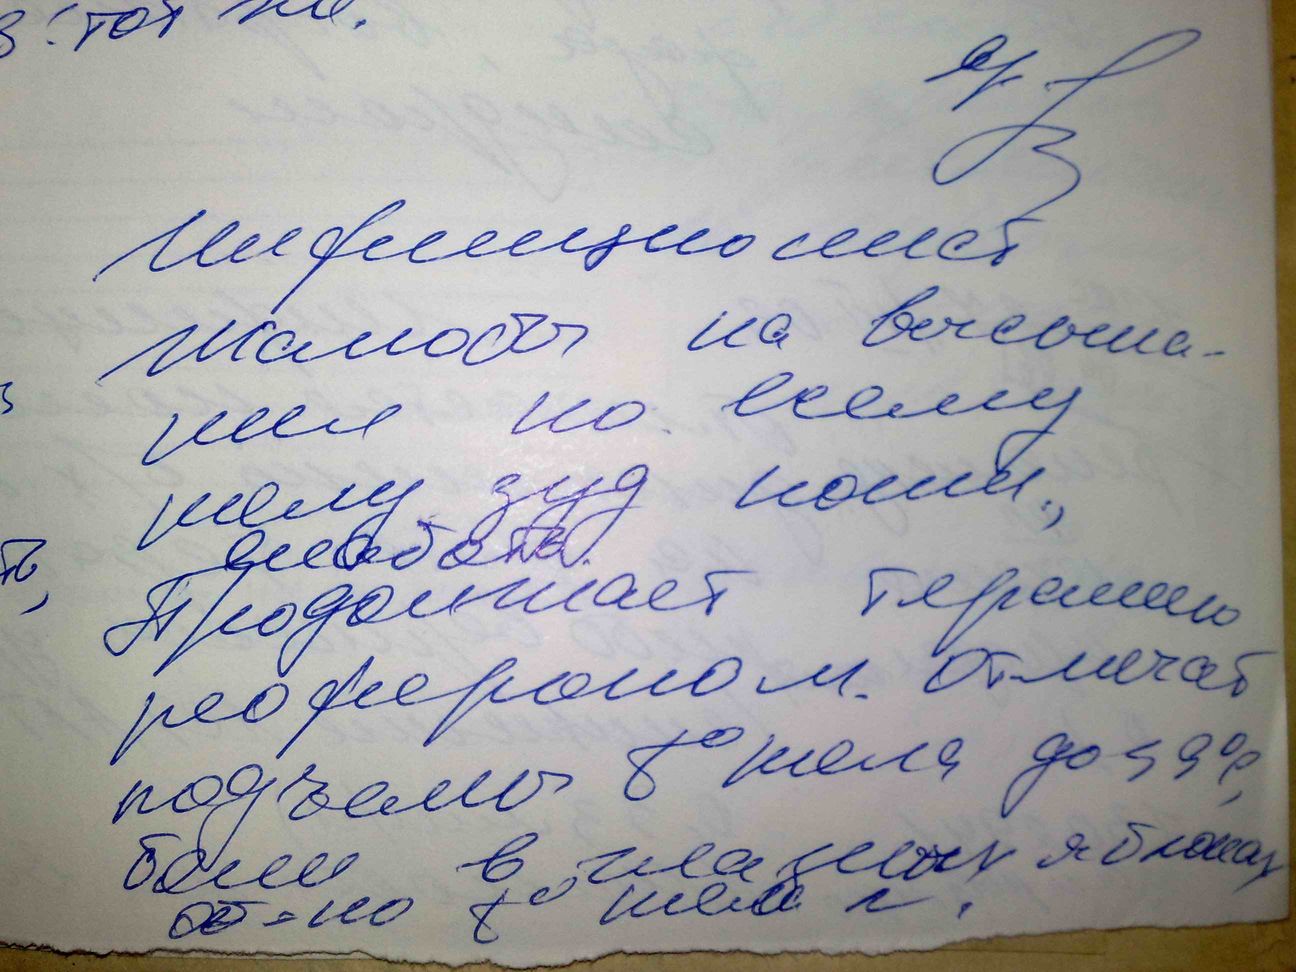 Инфекционист
Жалобы на высыпа-
ния по всему
телу зуд кожи,
слабость.
Продолжает терапию
рефероном. Отмечает
подъемы t° тела до
боли в глазных яблоках
t° тела